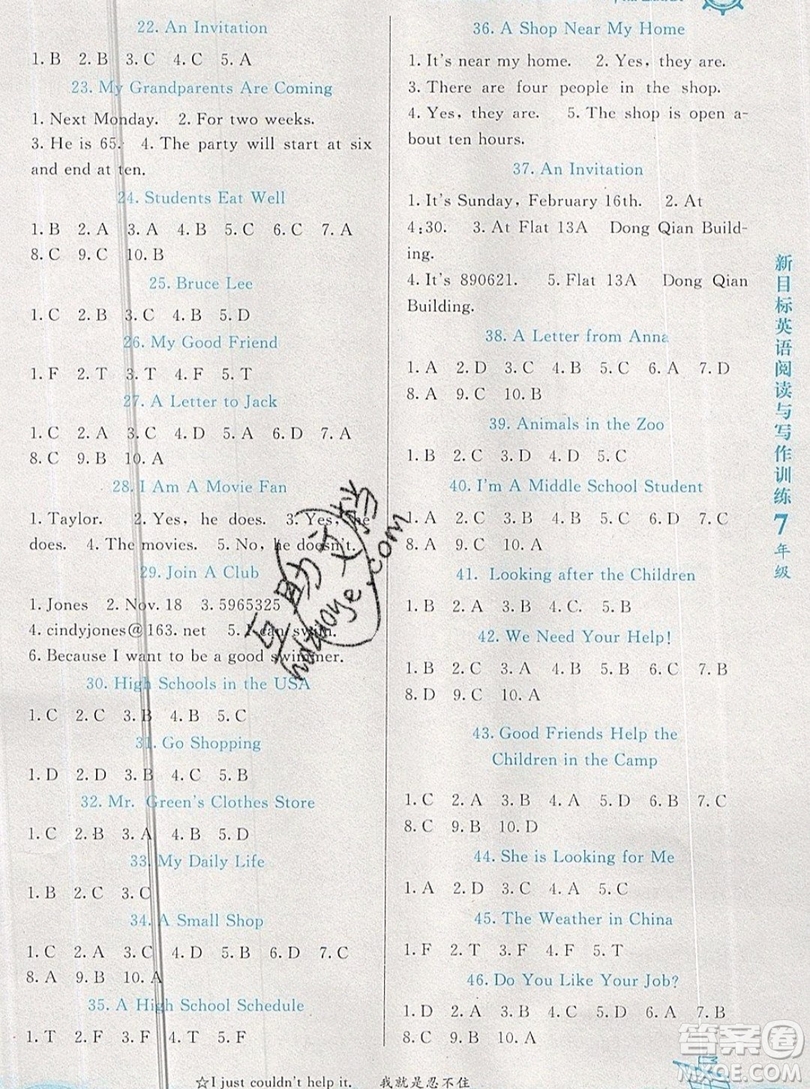 22. An Invitation
1. B 2. B 3. A 4. C 5. A
23. My Grandparents Are Coming
1. Next Monday. 2. For two weeks.
3. He is 65. 4. The party will start at six
and end at ten.
24. Students Eat Well
1. B 2. A 3. A 4. B 5. C 6. B 7. A
8. C 9. C 10. B
25. Bruce Lee
1. C 2. D 3. C 4. B 5. D
26. My Good Friend
1. F 2. T 3. T 4. F 5. T
27. A Letter to Jack
1. C 2. D 3. A 4. C 5. A 6. D 7. A
8. C 9. B 10. B
28. I Am A Movie Fan
1. Taylor. 2. Yes, he does. 3. Yes, he
does. 4. The movies. 5. No, he doesn't.
29. Join A Club
1. Jones 2. Nov. 18 3. 5965325
4. cindyjones@163.net 5. I can swim.
6. Because I want to be a good swimmer.
30. High Schools in the USA
1. C 2. C 3. B 4. B 5. C
31. Go Shopping
1. D 2. D 3. B 4. B 5. C
32. Mr. Green's Clothes Store
1. C 2. B 3. A 4. B 5. D
33. My Daily Life
1. B 2. C 3. C
34. A Small Shop
1. C 2. A 3. C 4. D 5. B 6. D 7. C
8. A 9. B 10. A
35. A High School Schedule
1. T 2. F 3. F 4. T 5. F
36. A Shop Near My Home
1. It's near my home. 2. Yes, they are.
3. There are four people in the shop.
4. Yes, they are. 5. The shop is open a-
bout ten hours.
37. An Invitation
1. It's Sunday, February 16th. 2. At
4:30. 3. At Flat 13A Dong Qian Build-
ing.
4. It's 890621. 5. Flat 13A Dong Qian
Building.
38. A Letter from Anna
1. A 2. D 3. C 4. B 5. C 6. A 7. D
8. A 9. C 10. B
39. Animals in the Zoo
1. B 2. C 3. D 4. C 5. D
40. I'm A Middle School Student
1. A 2. C 3. A 4. B 5. C 6. D 7. C
8. A 9. C 10. A
41. Looking after the Children
1. B 2. B 3. A 4. C 5. D
42. We Need Your Help!
1. C 2. B 3. A 4. B 5. C 6. A 7. B
8. D 9. C 10. A
43. Good Friends Help the
Children in the Camp
1. C 2. A 3. A 4. B 5. D 6. B 7. D
8. C 9. B 10. D
44. She is Looking for Me
1. A 2. D 3. C 4. D 5. C
45. The Weather in China
1. F 2. T 3. F 4. F 5. T
46. Do You Like Your Job?
1. D 2. A 3. C 4. D 5. A 6. B 7. D
8. C 9. C 10. A
新目标英语阅读与写作训练7年级
☆I just couldn't help it. 我就是忍不住
互助文档
huzuoye.com
答案圈